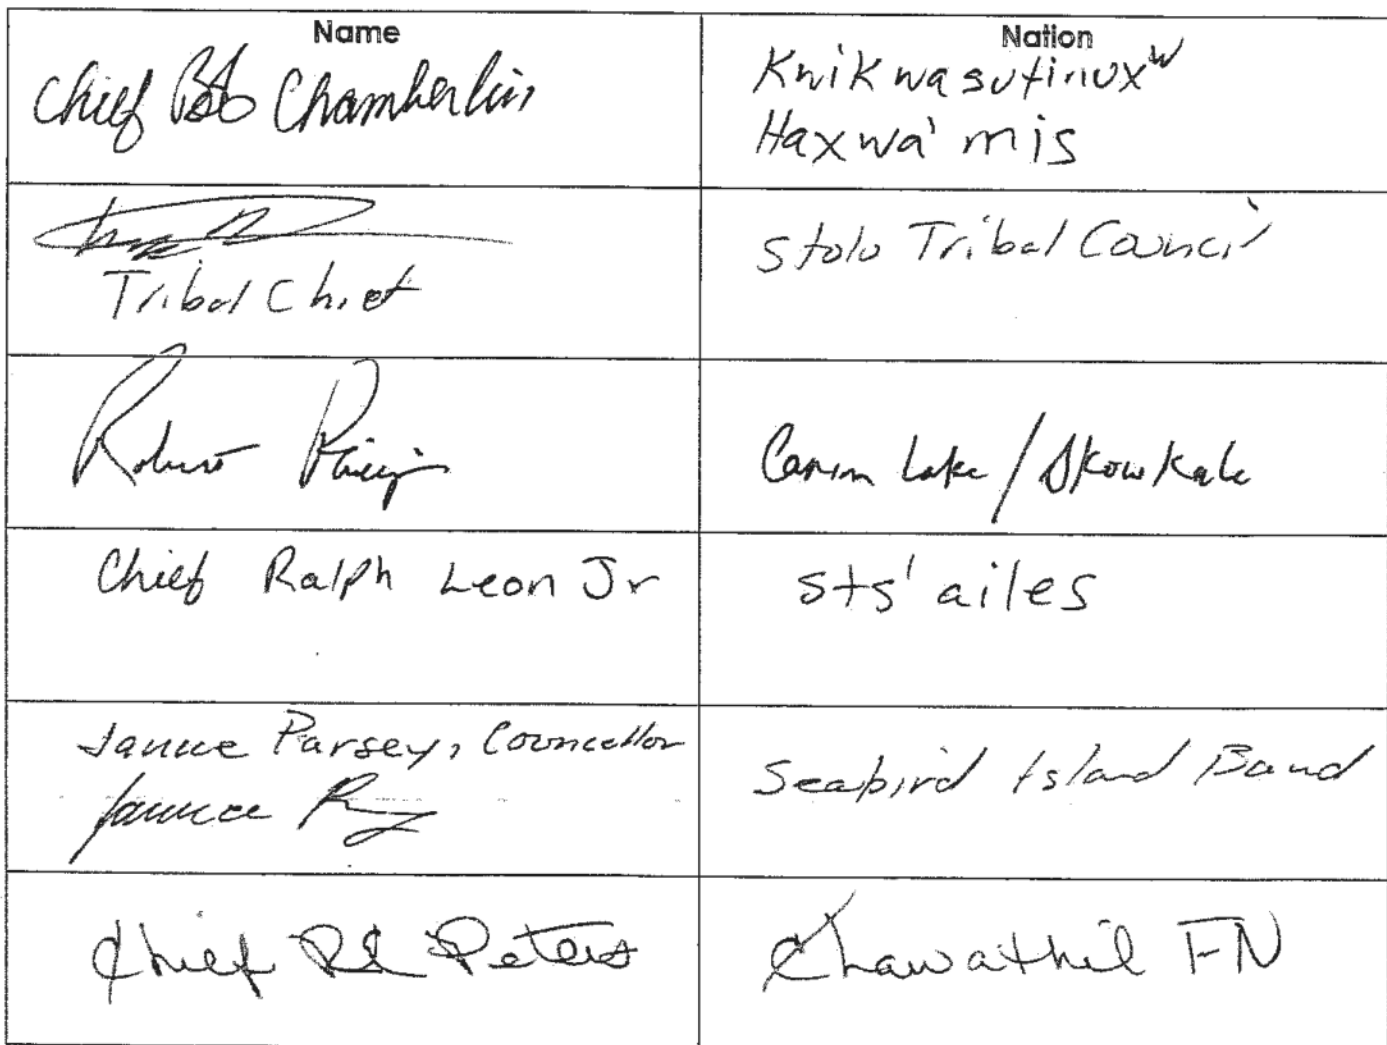 Name
Nation
Chief Bob Chamberlin
Kwikwasutinuxw
Haxwa'mis
Tribal Chief
Stolo Tribal Council
Robert Phillips
Canim Lake / Skowkale
Chief Ralph Leon Jr
Sts'ailes
Janice Parsey, Councellor
Janice
Seabird Island Band
Chief Peters
Chawathil FN